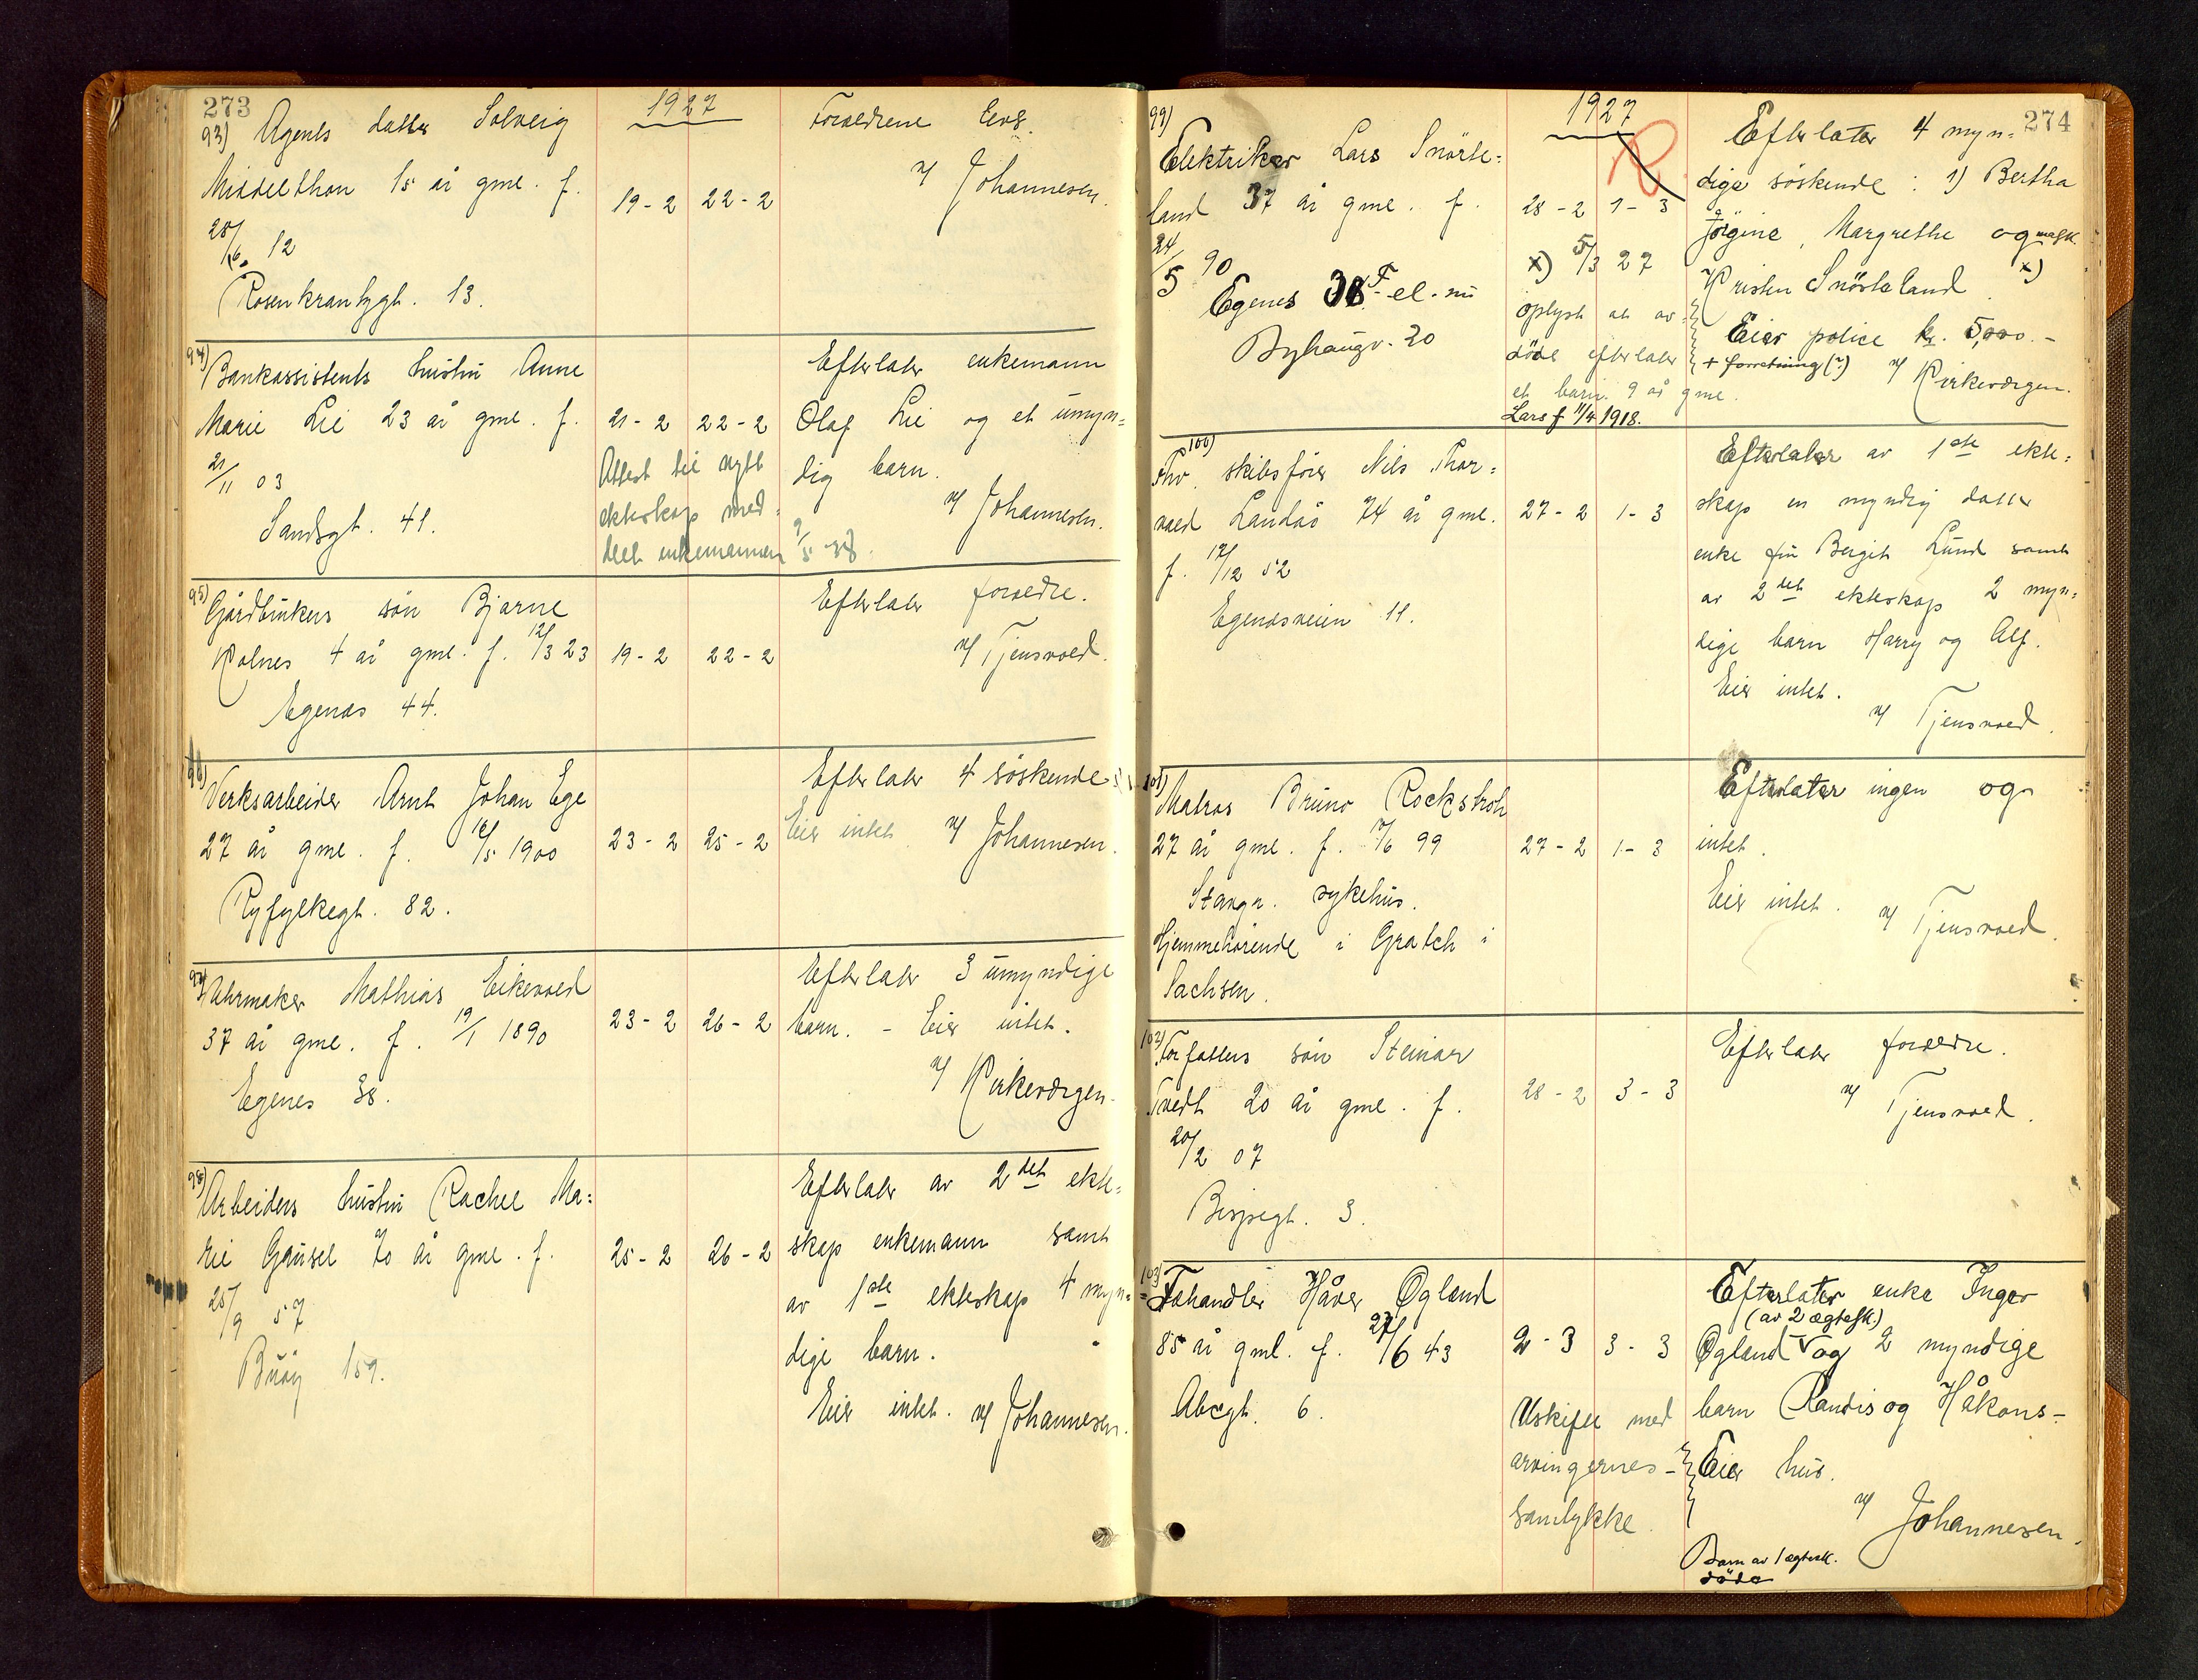 273
1927
93) Agents datter Solveig
Middelthon 15 år gml. f.
28/6. 12
Rosenkrantzgt. 13.
19-2 22-2
Forældrene lever.
v/ Johannesen.
94) Bankassistents hustru Anne
Marie Lie 23 år gml. f.
21/11 03
Sandsgt. 41.
21-2 22-2
Attest til nytt
ekteskap med-
delt enkemannen 9/5-38.
Efterlater enkemann
Olaf Lie og et umyn=
dig barn.
v/ Johannesen.
95) Gårdbrukers søn Bjarne
Kolnes 4 år gml. f. 12/3 23
Egenes 44.
19-2 22-2
Efterlater forældre.
v/ Tjensvold.
96) Verksarbeider Arnt Johan Ege
27 år gml. f. 16/5 1900
Ryfylkegt. 82.
23-2 25-2
Efterlater 4 søskende
Eier intet v/ Johannesen.
97) Uhrmaker Mathias Eikevold
37 år gml. f. 19/1 1890
Egenes 38.
23-2 26-2
Efterlater 3 umyndige
barn. - Eier intet.
v/ Kirkeværgen.
98) Arbeiders hustru Rachel Ma=
rie Gausel 70 år gml. f.
25/9 57
Buøy 159.
25-2 26-2
Efterlater av 2det ekte=
skap enkemann samt
av 1ste ekteskap 4 myn=
dige barn.
Eier intet. v/ Johannesen.
274
1927
R
99) Elektriker Lars Snørte=
land 37 år gml. f.
24/5 90
Egenes 38 F. el. nu
Byhaugv. 20
28-2 1-3
x) 5/3 27
oplyst at av-
døde efterlater
et barn 9 år gml.
Lars f 11/4 1918.
Efterlater 4 myn=
dige søskende: 1) Bertha
Jørgine, Margrethe og
Kristen Snørteland. x)
Eier police kr. 5,000.-
+ forretning(?) v/ Kirkeværgen.
100) Fhv. skibsfører Nils Thor=
vald Landås 74 år gml.
f. 17/12 52
Egenesveien 11.
27-2 1-3
Efterlater av 1ste ekte=
skap en myndig datter
enke fru Bergit Lund samt
av 2det ekteskap 2 myn=
dige barn Harry og Alf.
Eier intet.
v/ Tjensvold.
101) Matros Bruno Rockstroh
27 år gml. f. 7/6 99
Stavgr. sykehus.
Hjemmehørende i Gratch i
Sachsen.
27-2 1-3
Efterlater ingen og
intet.
Eier intet. v/ Tjensvold.
102) Forfatters søn Steinar
Tvedt 20 år gml. f.
20/2 07
Bispegt. 3.
28-2 3-3
Efterlater forældre.
v/ Tjensvold.
103) Fehandler Håver Øgland
85 år gml. f. 27/6 43
Abcgt. 6.
2-3 3-3
Uskifte med
arvingernes-
samtykke.
Efterlater enke Inger
(av 2 ægtesk.)
Øgland og 2 myndige
barn Randis og Håkons-
Eier hus.
v/ Johannesen.
Barn av 1 ægtesk.
døde